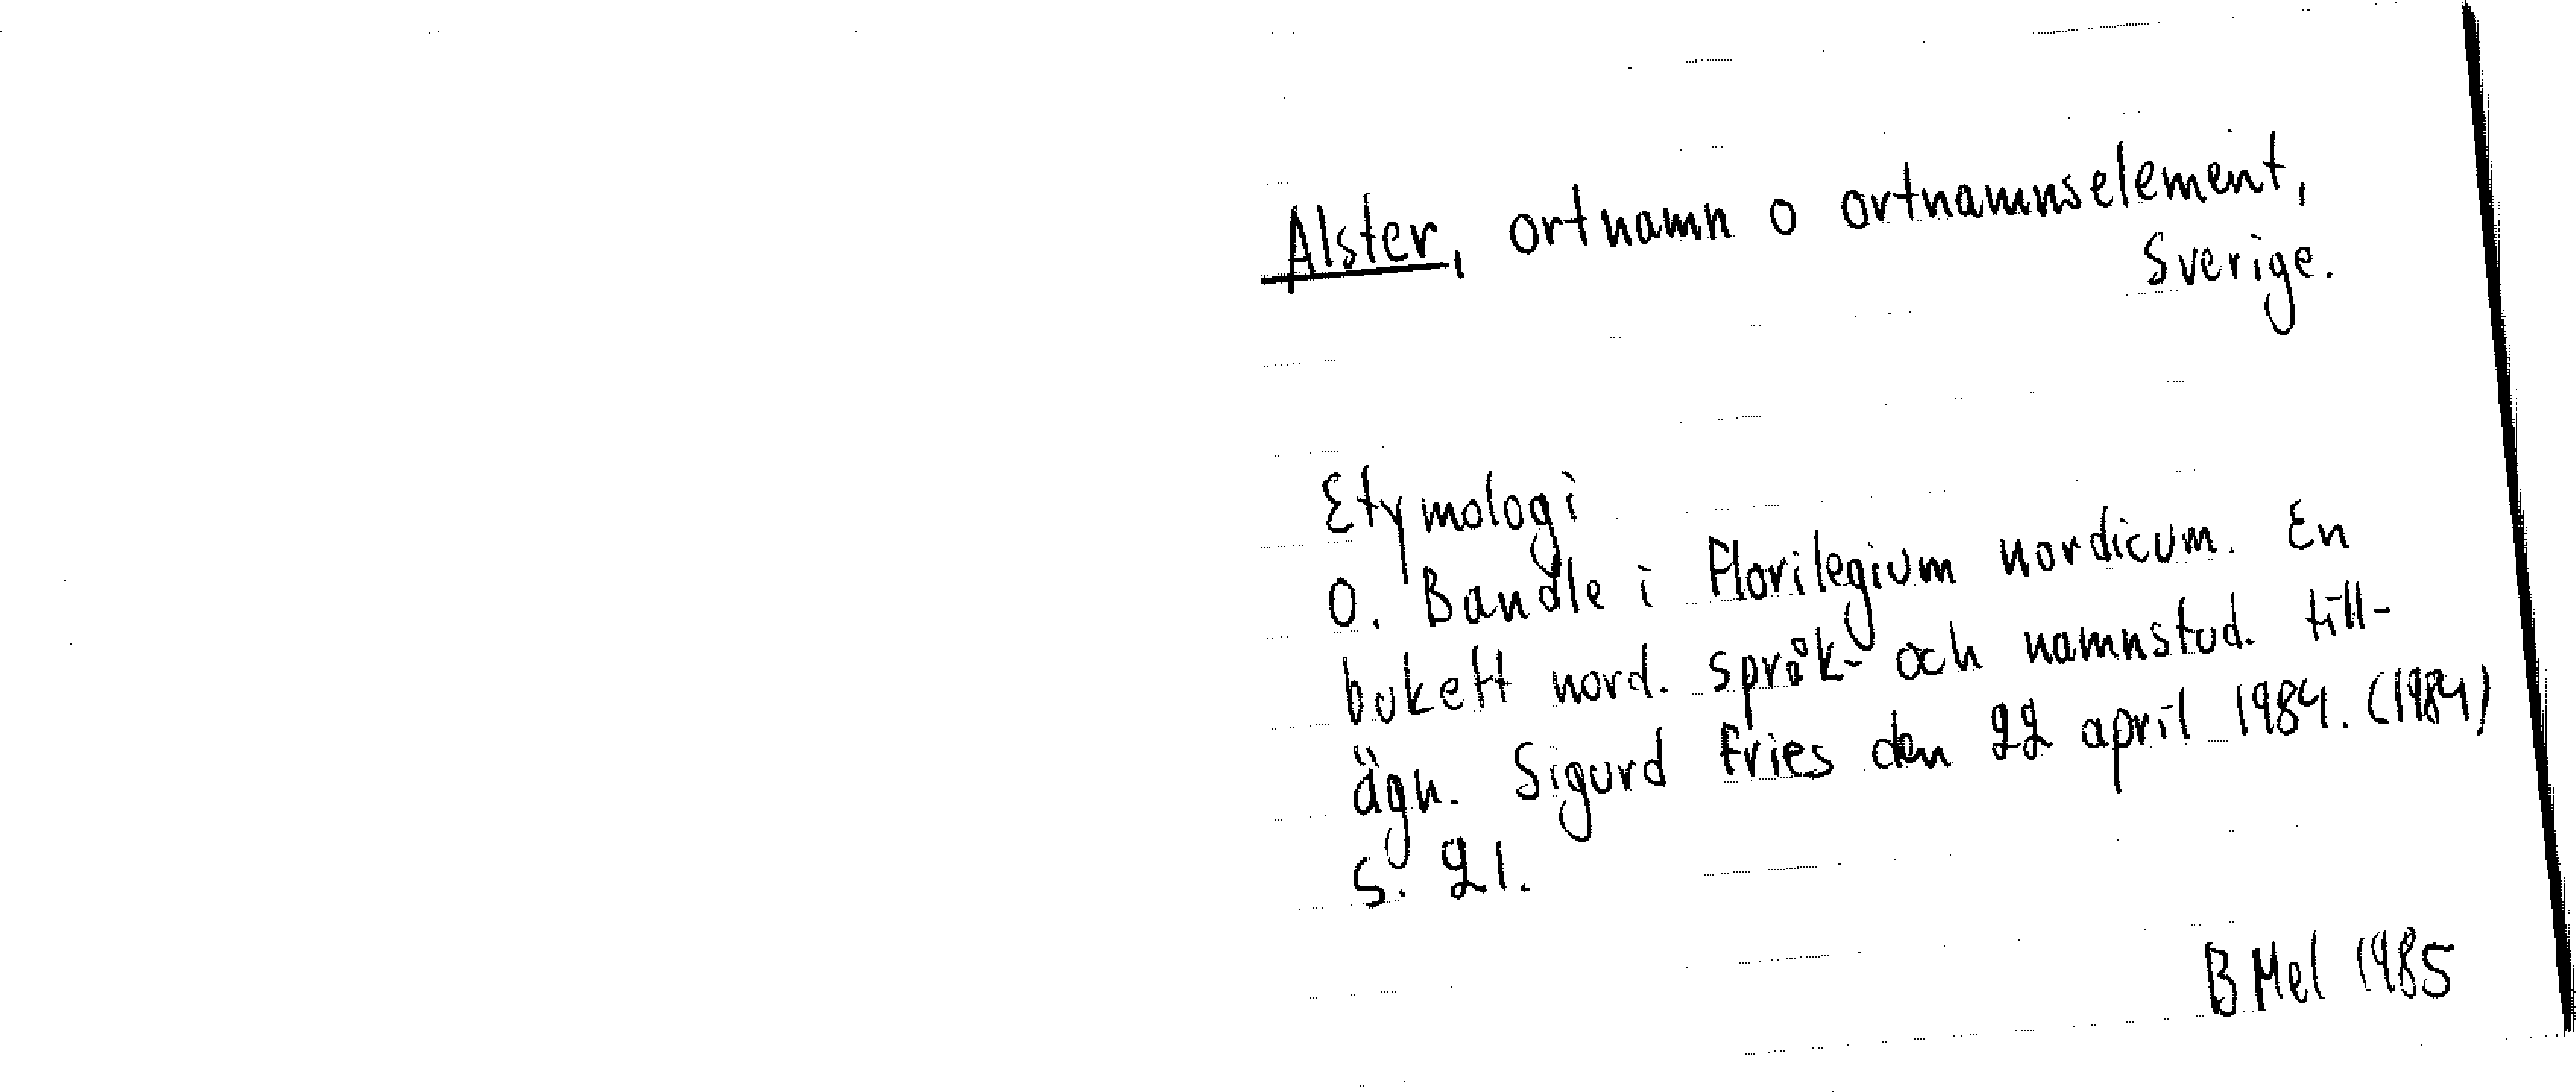 Alster, ortnamn o ortnamnselement,
Sverige.
Etymologi
O. Bandle i Florilegium nordicum. En
bukett nord. språk- och namnstud. till-
ägn. Sigurd Fries den 22 april 1984. (1984)
s. 21.
B Mel 1985